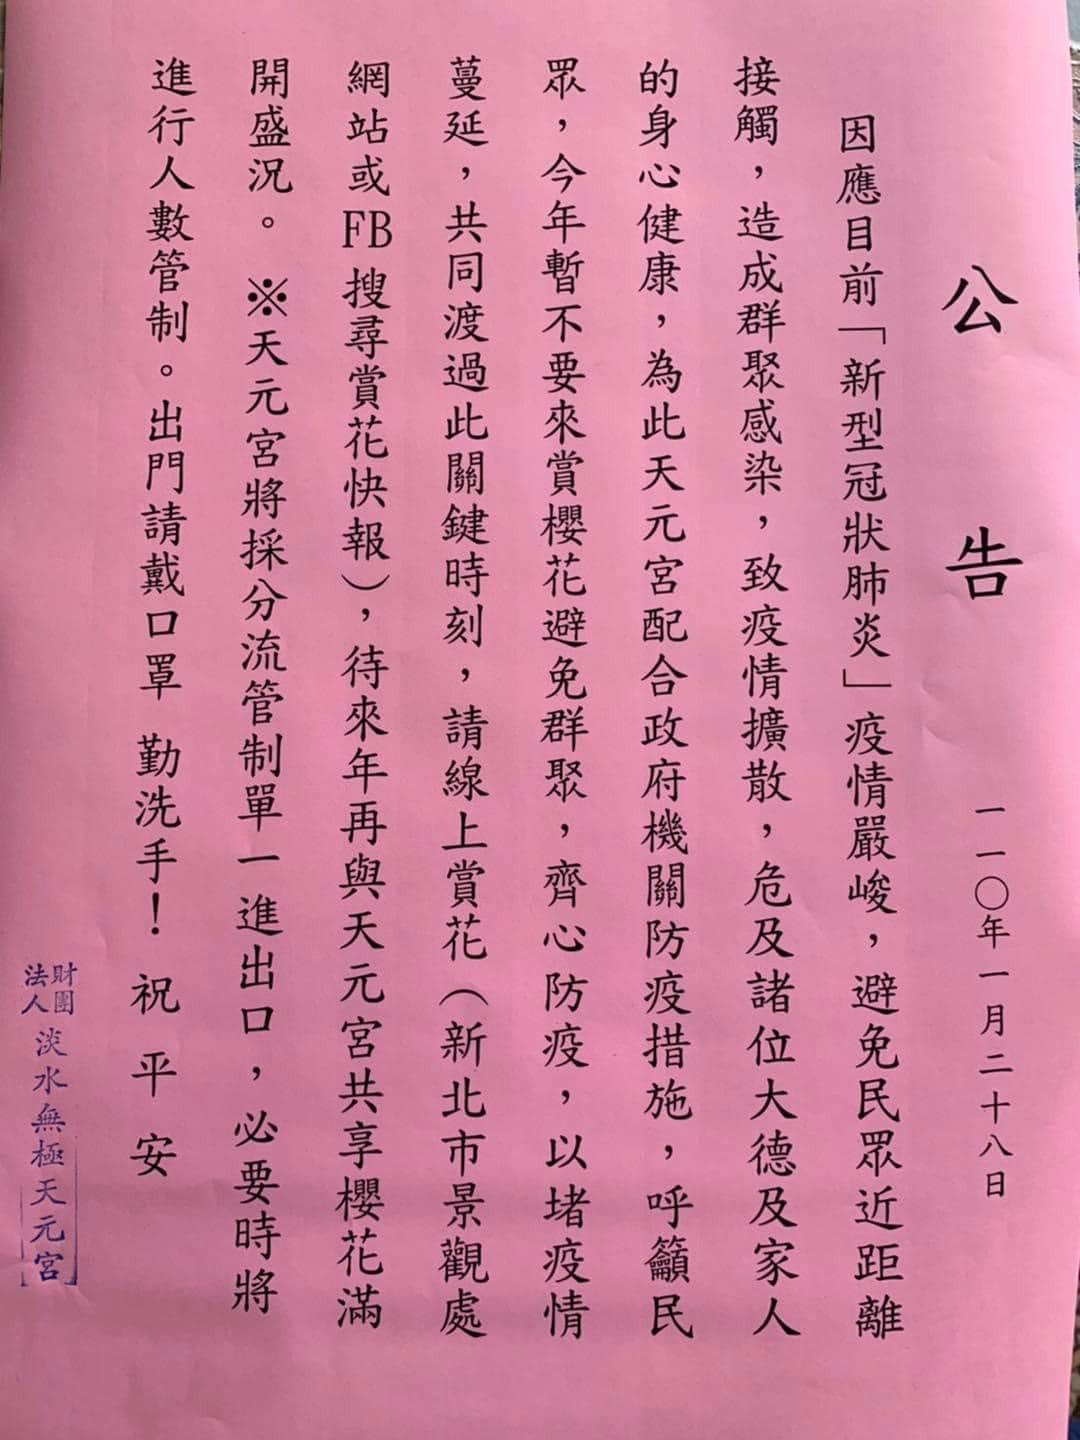 公告
一一〇年一月二十八日
因應目前「新型冠狀肺炎」疫情嚴峻，避免民眾近距離
接觸，造成群聚感染，致疫情擴散，危及諸位大德及家人
的身心健康，為此天元宮配合政府機關防疫措施，呼籲民
眾，今年暫不要來賞櫻花避免群聚，齊心防疫，以堵疫情
蔓延，共同渡過此關鍵時刻，請線上賞花（新北市景觀處
網站或FB搜尋賞花快報），待來年再與天元宮共享櫻花滿
開盛況。※天元宮將採分流管制單一進出口，必要時將
進行人數管制。出門請戴口罩 勤洗手！祝 平 安
財團法人淡水無極天元宮